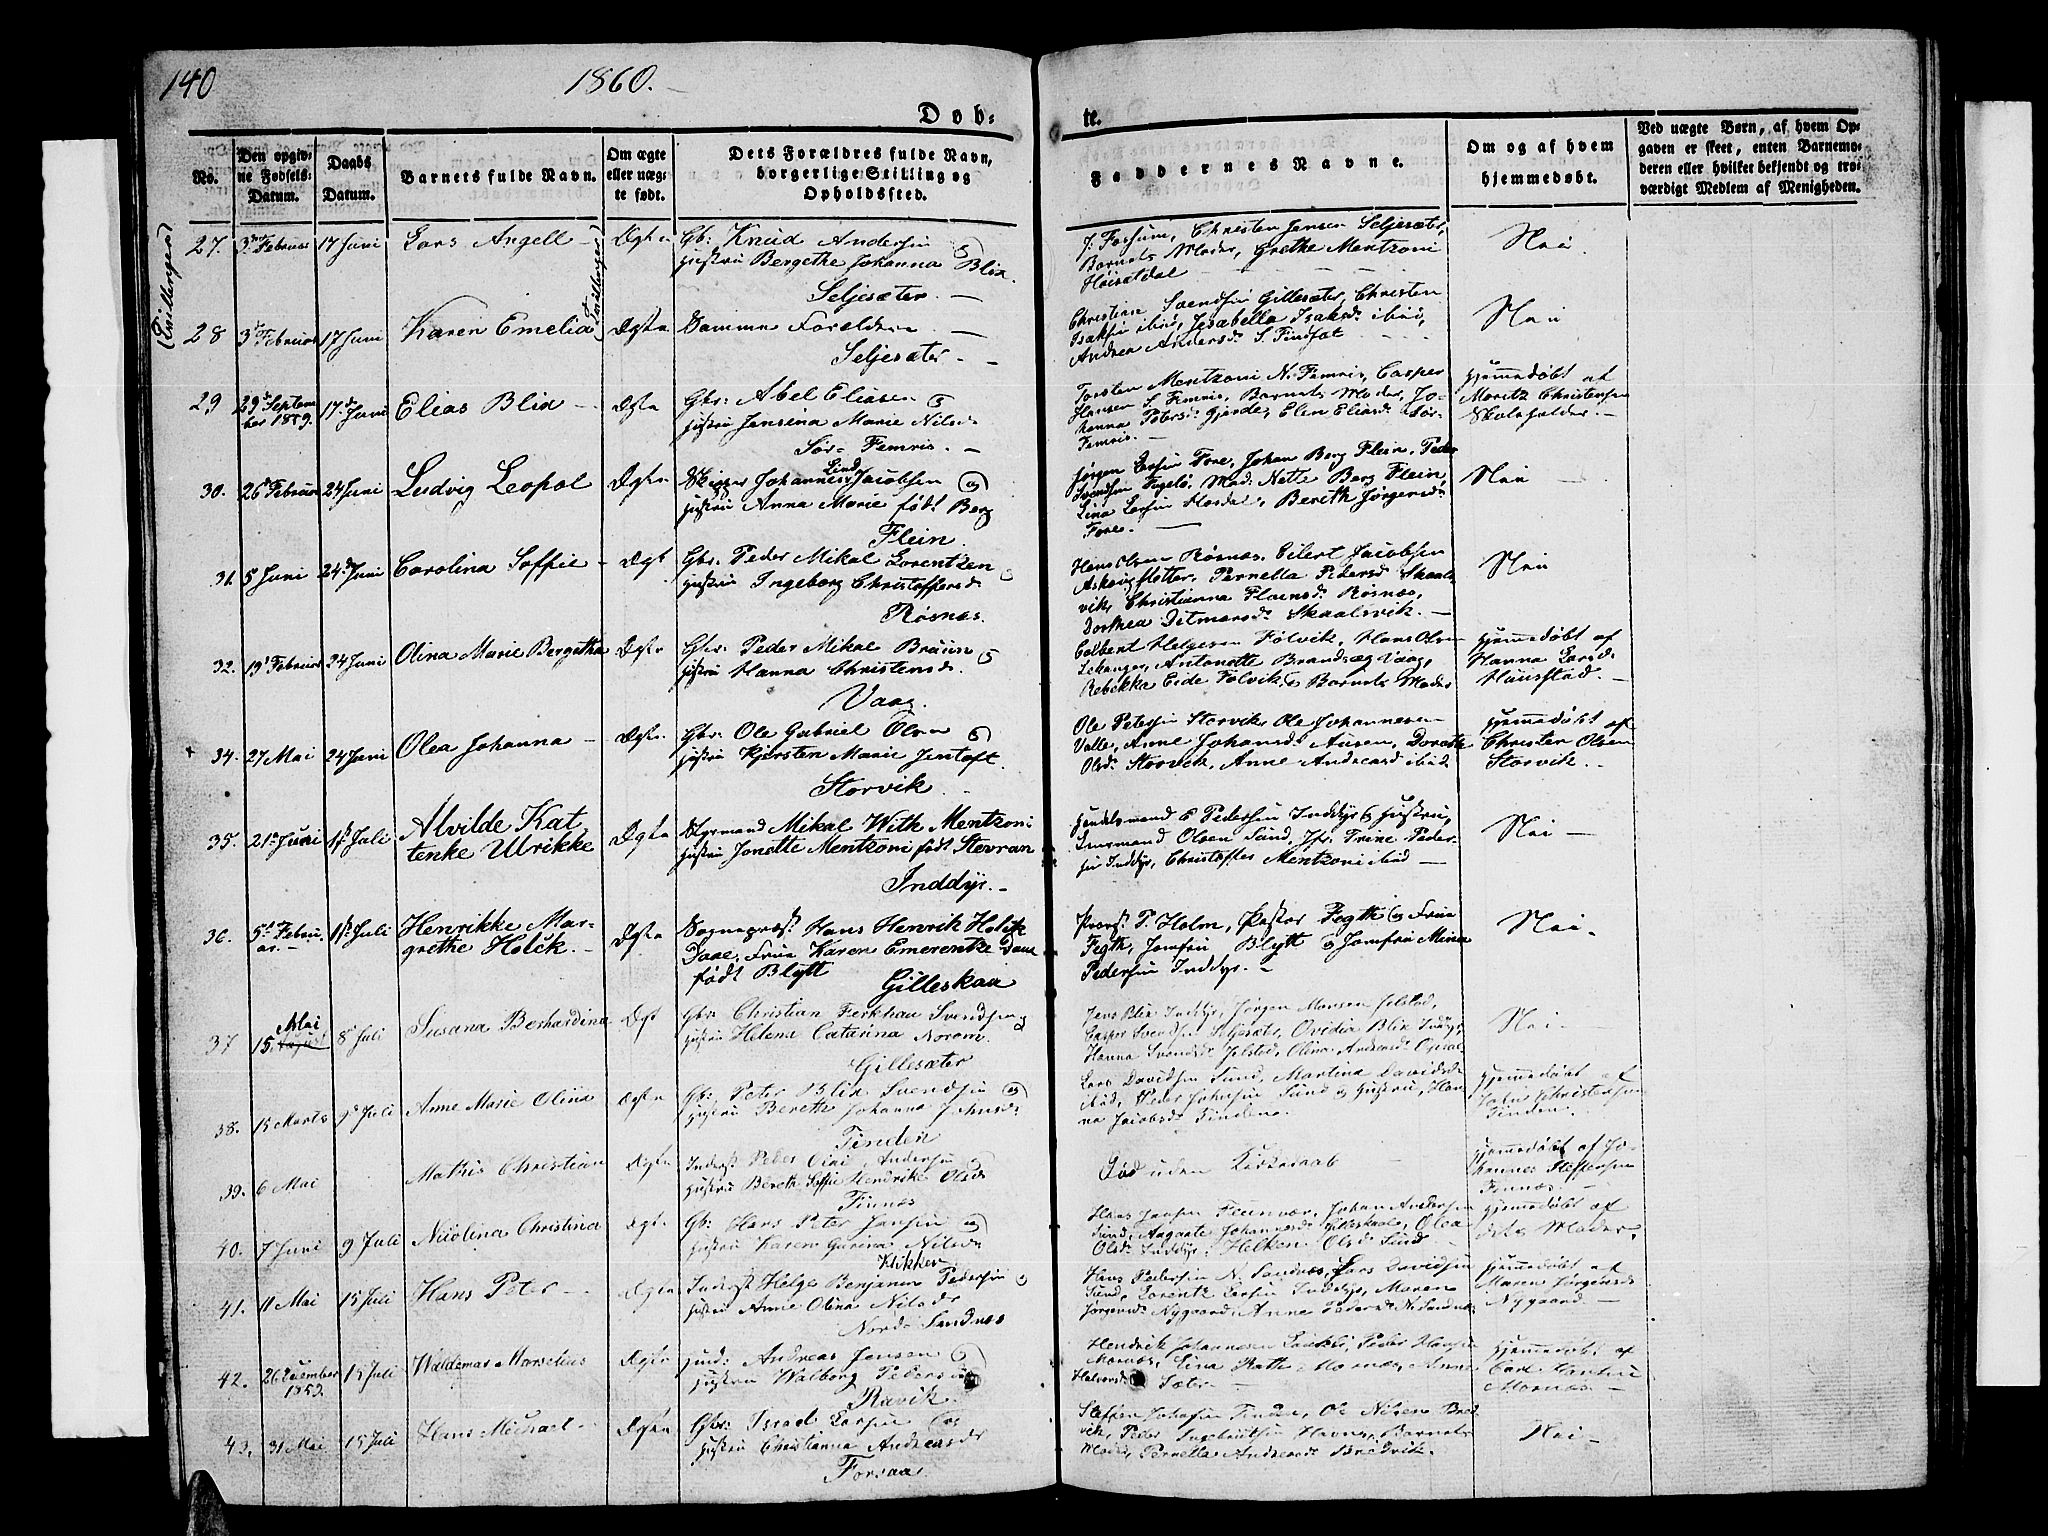 140
1860.
Døb-
te.
No.
Den opgiv-
ne Fødsels-
Datum.
Daabs
Datum.
Barnets fulde Navn.
Om ægte
eller uæg-
te født.
Dets Forældres fulde Navn,
borgerlige Stilling og
Opholdssted.
Faddernes Navne.
Om og af hvem
hjemmedøbt.
Ved uægte Børn, af hvem Op-
gaven er skeet, enten Barnemo-
deren eller hvilket bekjendt og tro-
værdigt Medlem af Menigheden.
(Tvillinger)
27. 3 Februar 17 Juni Lars Angell Ægte Gb: Knud Andersen &
Hustru Bergethe Johanna Blix
Seljesæter
J. Forsum, Christen Jensen Seljesæter,
Barnets Moder, Grethe Mentzoni
Høisetdal
Nei
28 3 Februar 17 Juni Karen Emelia Ægte Samme Forældre
Seljesæter
Christian Svendsen Gillesæter, Christen
Isaksen ibid, Jesabella Isaksd. ibid,
Andrea Andersd. S. Finsæt
Nei
29 29 Septem
ber 1859. 17de Juni Elias Blix Ægte Gbr: Abel Eliasen &
Hustru Jensina Marie Nilsd.
Sør-Femris.
Torsten Mentzoni N. Femris, Casper
Hansen S. Femris, Barnets Moder, Jo-
hanna Petersd. Gjerde, Elen Eliasd. Sør-
Femris.
Hjemmedøbt af
Moritz Christensen
Skoleholder.
30. 26 Februar 24 Juni Ludvig Leopol Ægte Skipper Johannes Lind Jacobsen &
Hustru Anna Marie født Berg
Flein.
Jørgen Larsen Fore, Johan Berg Flein, Peder
Svendsen Fugelø, Mad. Nette Berg Flein,
Lina Larsen Hosdal, Bereth Jørgensd.
Fore.
Nei
31. 5 Juni 24 Juni Carolina Soffie Ægt Gbr. Peder Mikal Lorentzen &
Hustru Ingeborg Christoffersd.
Røsnæs.
Hans Olsen Røsnæs, Eilert Jacobsen
Pernella Pedersd. Skaals-
vik, Christianna Røsnæs,
Dorthea Ditmarsd. Skaalsvik.
Nei
32. 19 Februar 24 Juni Olina Marie Bergetha Ægte Gbr. Peder Mikal Bruun &
Hustru Hanna Christensd.
Vaag.
Colbent Helgesen Følvik, Hans Olsen
Lekanger, Antonette Brandsæg Vaag,
Rebekka Eide Følvik, & Barnets Moder
Hjemmedøbt af
Hanna Larsd.
Haugstad.
34. 27 Mai 24 Juni Olea Johanna Ægte Gbr. Ole Gabriel Olsen &
Hustru Kjersten Marie Jentoft
Storvik
Ole Petersen Storvik, Ole Johannesen
Valle, Anne Johansd. Ausen, Dorothe
Olsd. Storvik, Anne Andreasd ibid
Hjemmedøbt af
Christen Olsen
Storvik.
35. 21 Juni 1st Juli Alvilde Kat
tenke Ulrikke Ægte Styrmand Mikal With Mentzoni
Hustru Jonette Mentzoni født Stevran
Inddyr.
Handelsmand E Pedersen Inddyr & Hustru,
Lensmand Olsen Sund, Jfr. Trine Peder-
sen Inddyr, Christoffer Mentzoni ibid
Nei
36. 5 Febru-
ar. 1st Juli Henrikke Mar-
grethe Holck. Ægte Sognepræst Hans Henrik Holck
Daae, Frue Karen Emerentze Daae
født Blytt
Gilleskaa
Provst P. Holm, Pastor Fogth & Frue
Fogth, Jomfru Blytt & Jomfru Mina
Pedersen Inddyr.
Nei.
37 15 Mai 8 Juli Susana Berhardina Ægt Gbr: Christian Ferkhau Svendsen &
Hustru Helena Catarina Norum
Gillesæter
Jens Blix Inddyr, Jørgen Monsen Jelstad,
Casper Svendsen Seljesæter, Ovidia Blix Inddyr,
Hanna Svendsd. Jelstad, Olina Andreasd.
Nei
38. 15 Marts 9 Juli Anne Marie Olina Ægte Gb: Peter Blix Svendsen &
Hustru Berethe Johanna Johnsd.
Tinden
Lars Davidsen Sund, Martina Davidsd.
ibid, Peder Johnsen Sund & Hustru, Han-
na Jacobsd. Tinden.
Hjemmedøbt af
John Christensen
Tinden.
39. 6 Mai Mathis Christian Ægte Inderst Peder Andersen &
Hustru Bereth Soffie Hendrike Olsd.
Finnæs
Død uden Kirkedaab
Hjemmedøbt af Jo-
hannes Steffensen
Finnæs.
40. 7 Juni 9 Juli Nicolina Christina Ægte Gb: Hans Peter Jensen &
Hustru Karen Gurina Nilsd.
Klikken
Hans Jensen Fleinvær, Johan Andersen
Sund, Aagaate Johannesd. Gilleskaal, Olea
Olsd. Inddyr, Helken Olsd Sund
Hjemmedøbt af
dets Moder.
41. 11 Mai 15 Juli Hans Peter Ægte Inderst Helge Benjamin Pedersen &
Hustru Anne Olina Nilsd.
Nord-Sandnæs
Hans Pedersen N. Sandnæs, Lars Davidsen
Sund, Lorents Larsen Inddyr, Maren
Jørgensd. Nygaard, Anne Pedersd. N. Sandnæs
Hjemmedøbt af
Maren Jørgensd.
Nygaard
42. 26 December
1859. 15 Juli Waldemar Marselius Ægte Ind: Andreas Jensen &
Hustru Walborg Pedersd.
Ravik
Hendrik Johannesen, Peder Hansen
Mornæs, Lina Rath Mornæs, Anne
Halvorsd. Sæter
Hjemmedøbt af
Mornæs
43. 31 Mai 15 Juli Hans Michael Ægte Gbr: Israel Larsen &
Hustru Christianna Andreasd.
Forsaa.
Steffen Johnsen Tinden, Ole Nilsen Bred-
vik, Peder Ingebrigtsen Havnæs, Barnets
Moder, Pernella Andreasd. Bredvik.
Nei